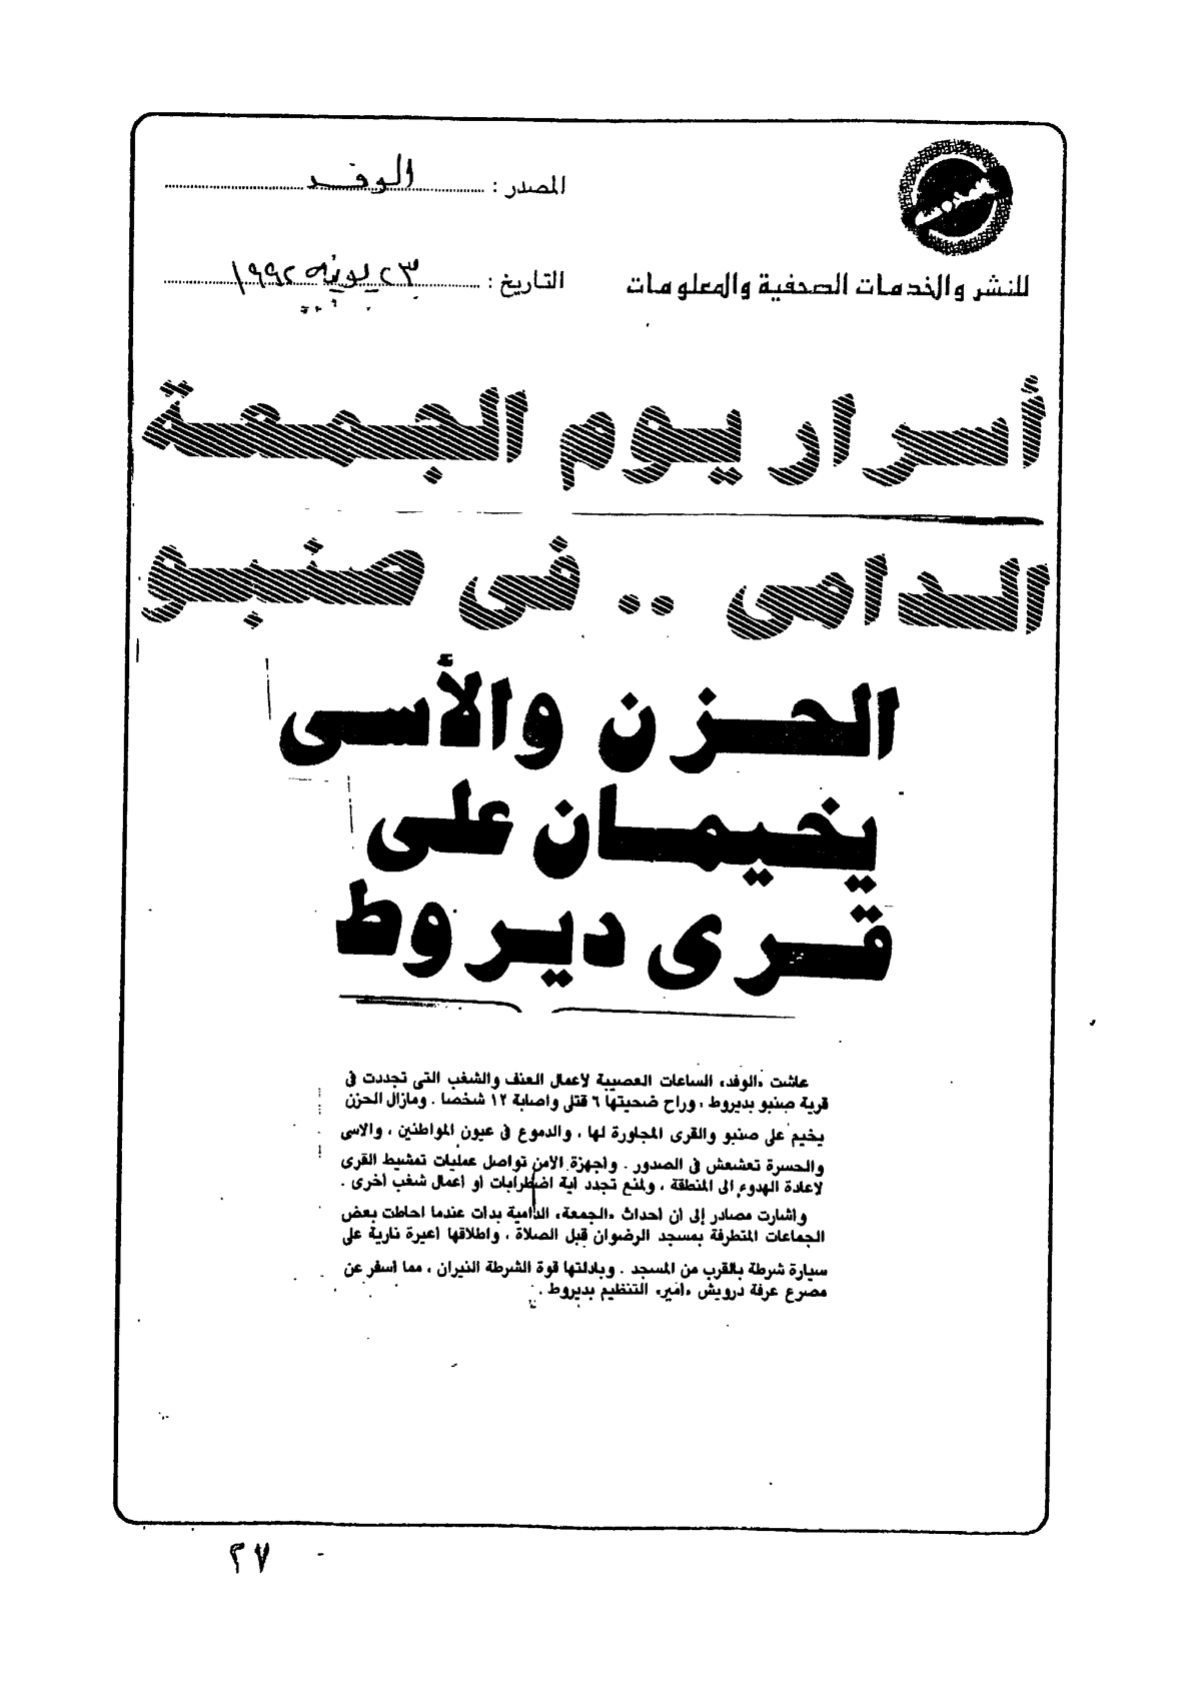 المصدر : الوفد
للنشر والخدمات الصحفية والمعلومات
التاريخ : ٢٣ يونيه ١٩٩٢
أسرار يوم الجمعة
الدامى .. فى صنبو
الحزن والأسى
يخيمان على
قرى ديروط
عاشت «الوفد» الساعات العصيبة لاعمال العنف والشغب التى تجددت فى
قرية صنبو بديروط ، وراح ضحيتها ٦ قتلى واصابة ١٢ شخصا . ومازال الحزن
يخيم على صنبو والقرى المجاورة لها ، والدموع فى عيون المواطنين ، والاسى
والحسرة تعشعش فى الصدور . واجهزة الامن تواصل عمليات تمشيط القرى
لاعادة الهدوء الى المنطقة ، ولمنع تجدد اية اضطرابات او اعمال شغب اخرى .
واشارت مصادر إلى ان احداث «الجمعة» الدامية بدات عندما احاطت بعض
الجماعات المتطرفة بمسجد الرضوان قبل الصلاة ، واطلاقها اعيرة نارية على
سيارة شرطة بالقرب من المسجد . وبادلتها قوة الشرطة النيران ، مما اسفر عن
مصرع عرفة درويش «امير» التنظيم بديروط .
٢٧